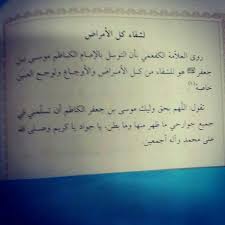 لشفاء كل الأمراض
روى العلامة الكفعمي بأن التوسل بالإمام الكاظم موسى بن
جعفر هو للشفاء من كل الأمراض والأوجاع ولوجع العين
خاصة(١).
تقول: اللهم بحق وليك موسى بن جعفر الكاظم أن تسلمني في
جميع جوارحي ما ظهر منها وما بطن، يا جواد يا كريم وصلى الله
على محمد وآله أجمعين.